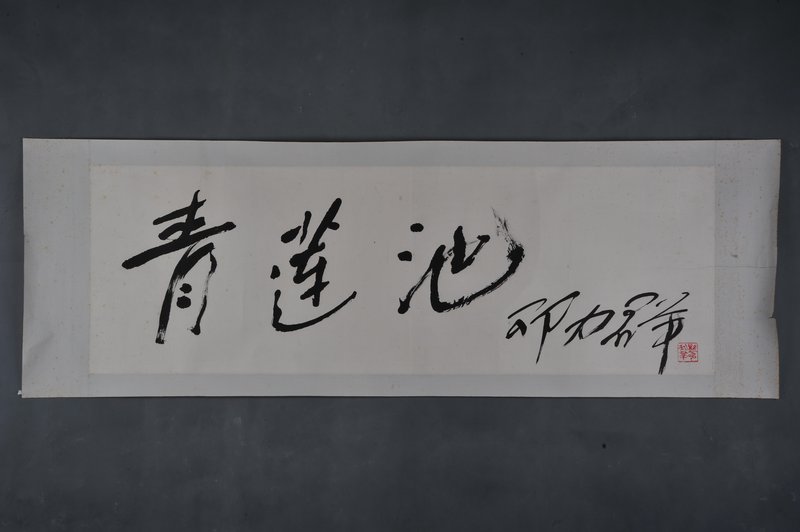 青莲池
邓力群